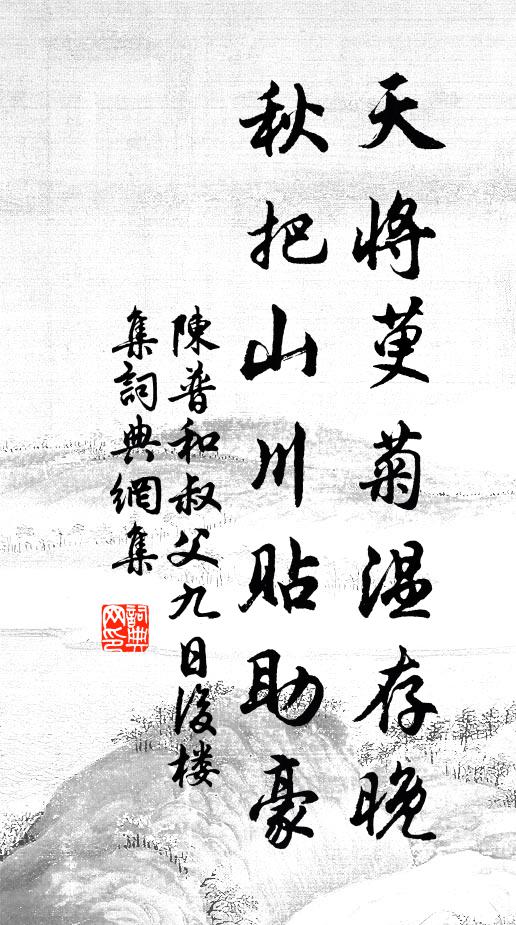 天將萸菊温存晚
秋把山川貼助豪
陳普和叔父九日後楼
集詞典網集
詞典网印